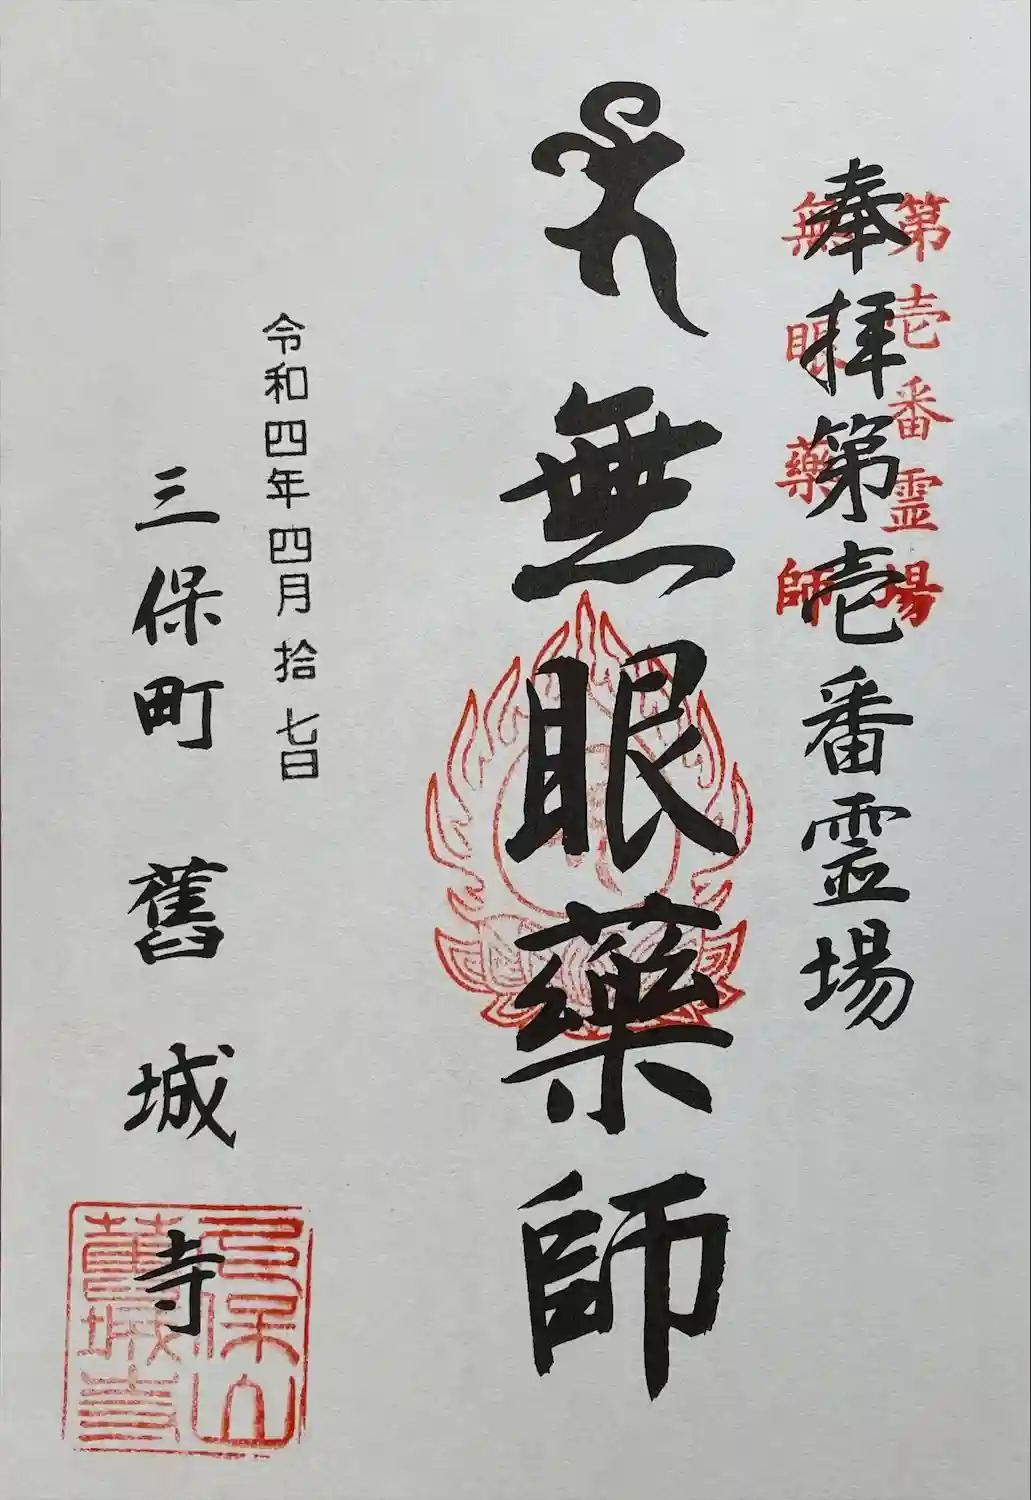 第壱番霊場
無眼藥師
奉拝第壱番霊場
無眼藥師
令和四年四月拾七日
三保町 舊城寺
舊城寺